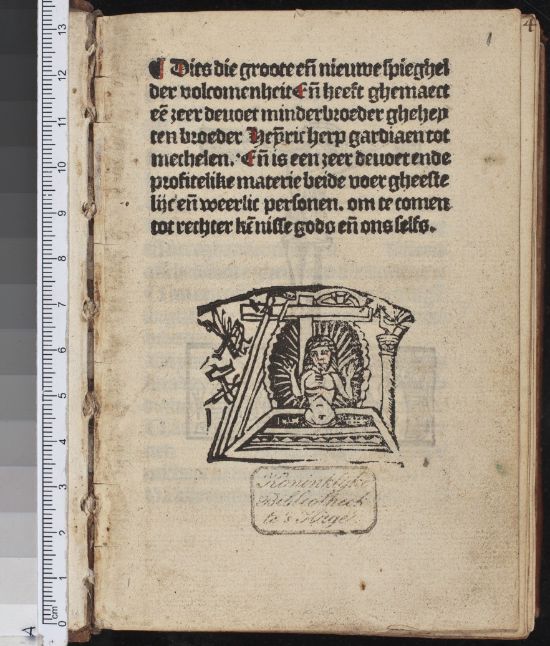 1
4
¶ Dits die groote eñ nieuwe spieghel
der volcomenheit Eñ heeft ghemaect
eē zeer deuoet minderbroeder ghehey
ten broeder Heȳric herp gardiaen tot
mechelen. Eñ is een zeer deuoet ende
profitelike materie beide voer gheeste
lijc eñ weerlic personen. om te comen
tot rechter kēnisse gods eñ ons selfs.
Koninklijke
Bibliotheek
te 's Hage
13
12
11
10
9
8
7
6
5
4
3
2
1
cm 0
A